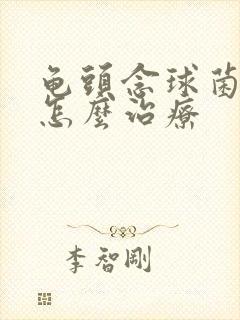 龟頭念球菌
怎麼治療
李智剛